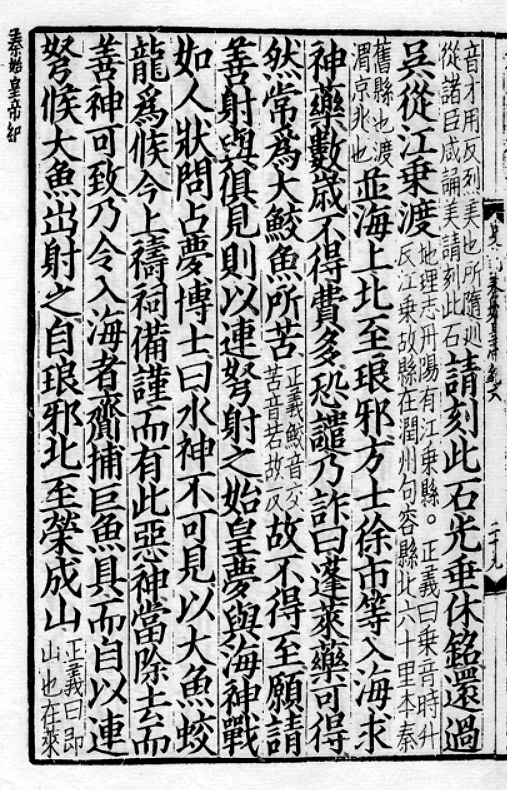 史 秦始皇帝紀六 二十九
音才用反列美也所隨巡
從諸臣咸誦美請刻此石
請刻此石光垂休銘還過
吳從江乗渡
地理志丹陽有江乗縣。正義曰乗音時升
反江乗故縣在潤州句容縣北六十里本秦
舊縣也渡
渭京兆也
並海上北至琅邪方士徐市等入海求
神藥數歲不得費多恐譴乃詐曰蓬萊藥可得
然常爲大鮫魚所苦
正義鮫音交
苦音若故反
故不得至願請
善射與俱見則以連弩射之始皇夢與海神戰
如人狀問占夢博士曰水神不可見以大魚蛟
龍爲候今上禱祠備謹而有此惡神當除去而
善神可致乃令入海者齎捕巨魚具而自以連
弩候大魚出射之自琅邪北至榮成山
正義曰即
山也在萊
秦始皇帝紀